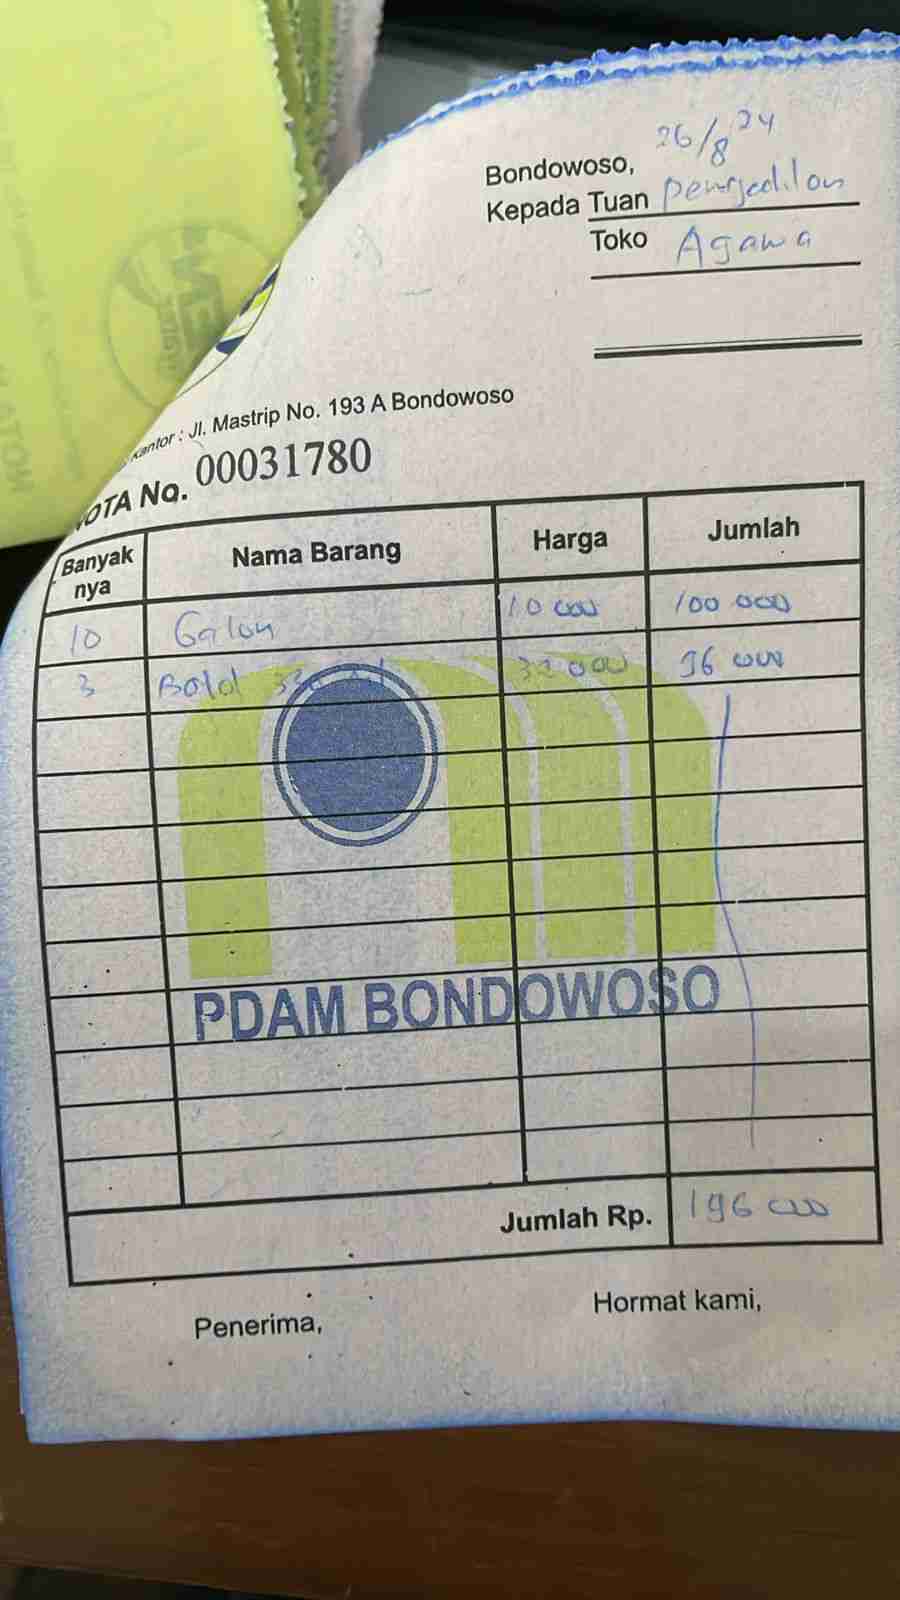 Bondowoso, 26/8 24
Kepada Tuan Pengadilan
Toko Agawa
Kantor : Jl. Mastrip No. 193 A Bondowoso
NOTA No. 00031780
Banyak nya Nama Barang Harga Jumlah
10 Galon 10 000 100 000
3 Botol 330 ml 32 000 96 000
PDAM BONDOWOSO
Jumlah Rp. 196 000
Penerima, Hormat kami,